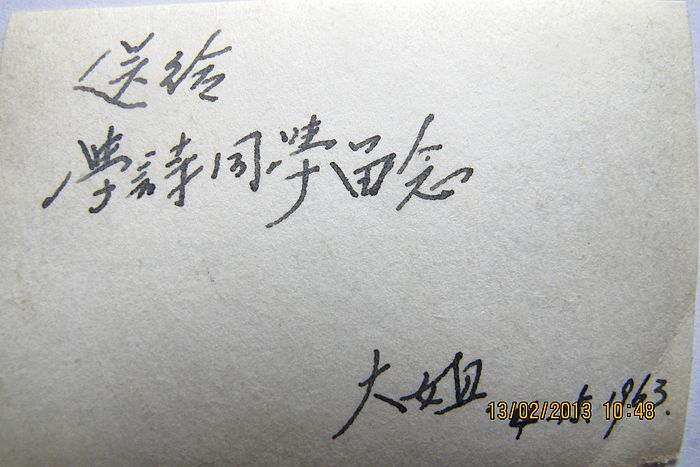 送给
學詩同學留念
大姐 4.15.1963.
13/02/2013 10:48